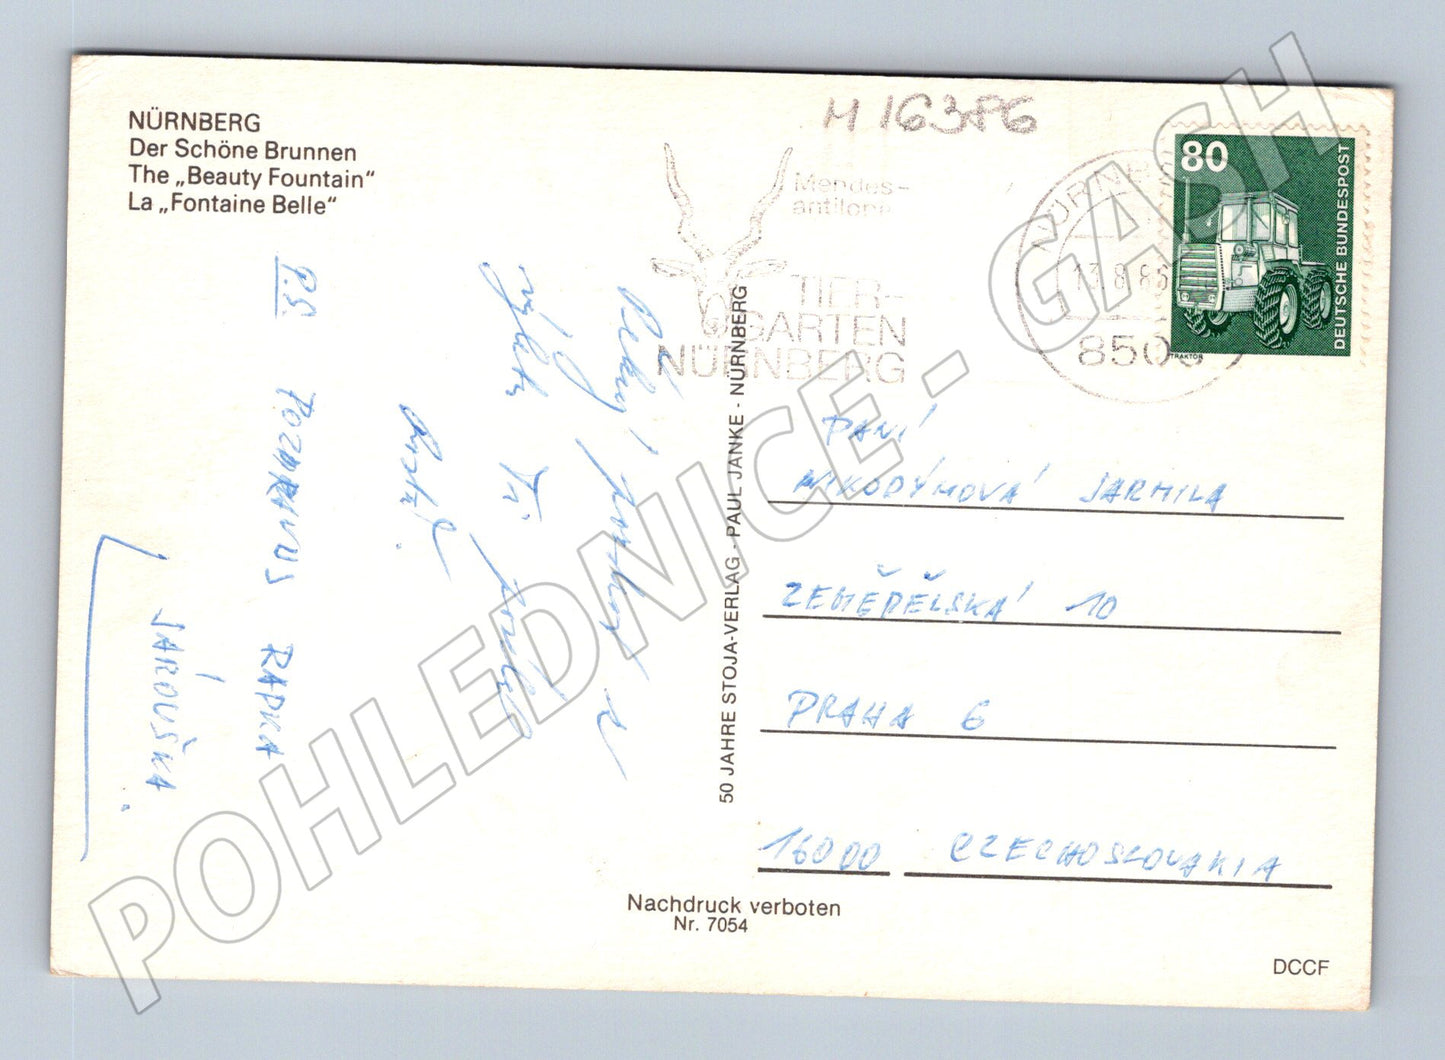 M 16386
NÜRNBERG
Der Schöne Brunnen
The „Beauty Fountain“
La „Fontaine Belle“
Mendes-
antilope
TIER-
GARTEN
NÜRNBERG
NÜRNB
13.8.86
850
80
DEUTSCHE BUNDESPOST
TRAKTOR
P.S. POZDRAVUS RADKA
JAROUŠKA.
50 JAHRE STOJA-VERLAG - PAUL JANKE - NÜRNBERG
PANÍ
NIKODÝMOVÁ JARMILA
ZEMĚDĚLSKÁ 10
PRAHA 6
16000 CZECHOSLOVAKIA
Nachdruck verboten
Nr. 7054
DCCF
POHLEDNICE - GASH